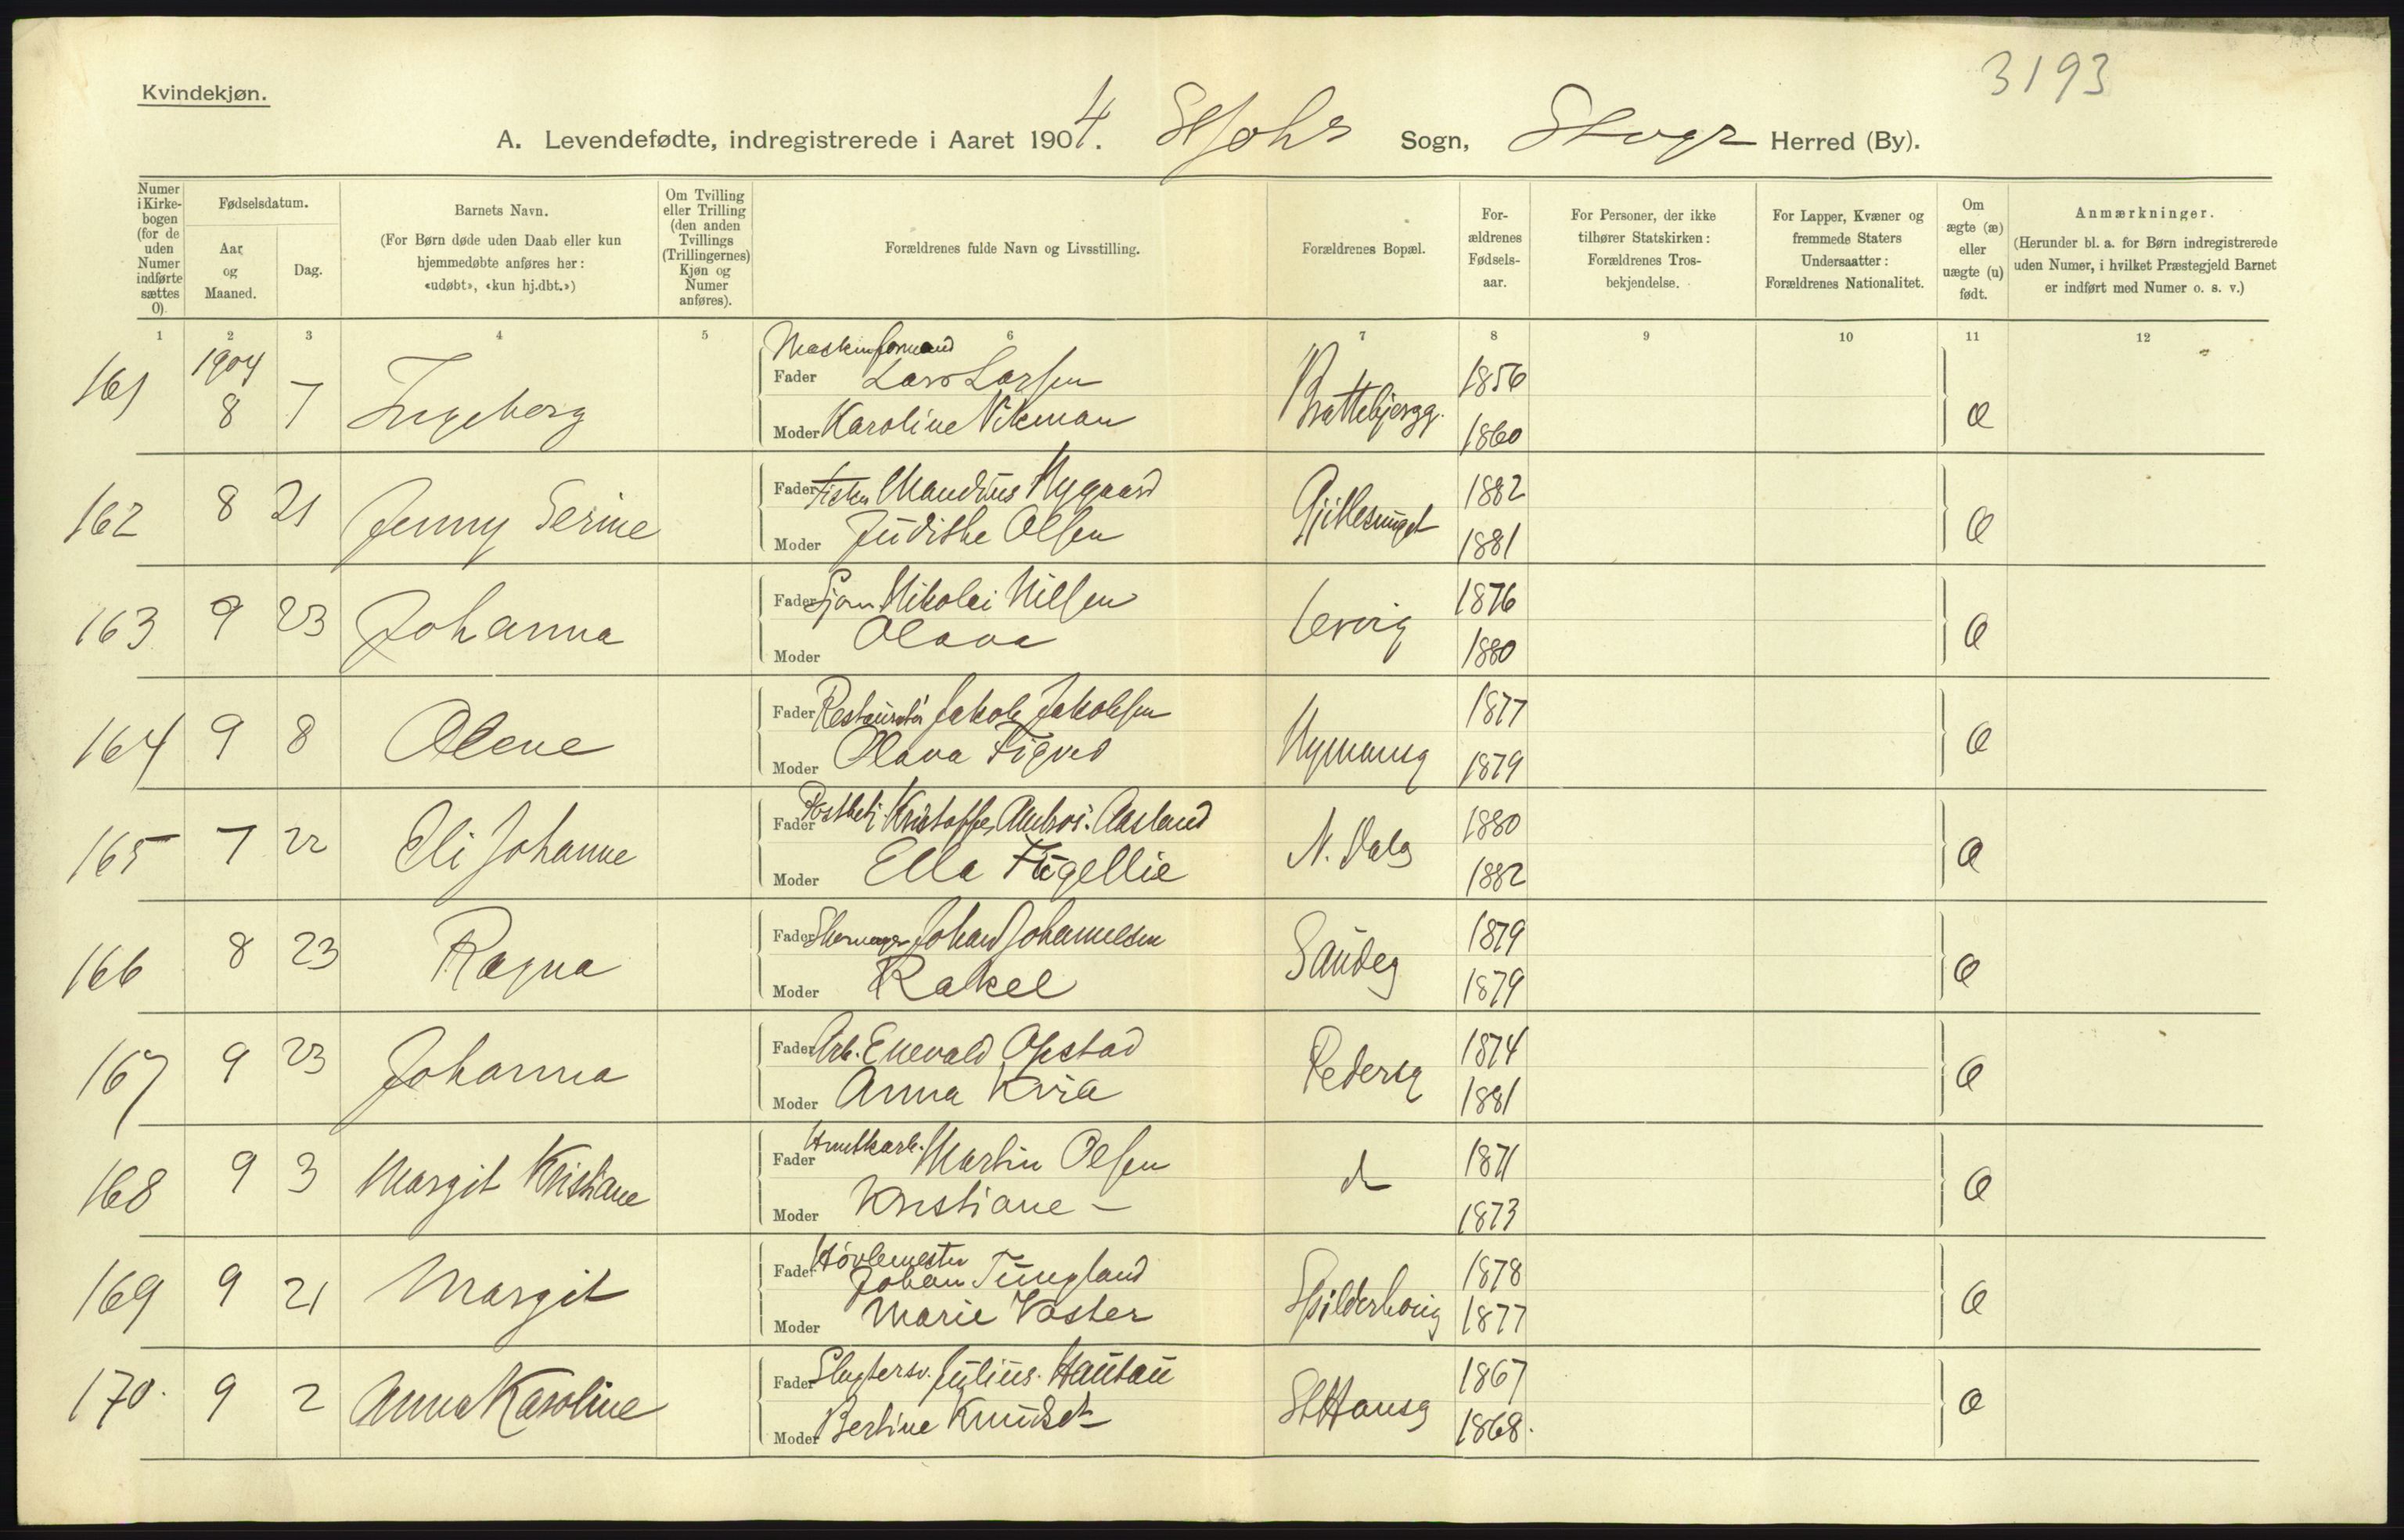 3193
Kvindekjøn.
A. Levendefødte, indregistrerede i Aaret 1904. StJohs Sogn, Stvgr Herred (By).
Numer i Kirke- bogen (for de uden Numer indførte sættes 0).
Fødselsdatum.
Aar og Maaned.
Dag.
Barnets Navn.
(For Børn døde uden Daab eller kun hjemmedøbte anføres her: «udøbt», «kun hj.dbt.»)
Om Tvilling eller Trilling (den anden Tvillings (Trillingernes) Kjøn og Numer anføres).
Forældrenes fulde Navn og Livsstilling.
Forældrenes Bopæl.
For- ældrenes Fødsels- aar.
For Personer, der ikke tilhører Statskirken: Forældrenes Tros- bekjendelse.
For Lapper, Kvæner og fremmede Staters Undersaatter: Forældrenes Nationalitet.
Om ægte (æ) eller uægte (u) født.
Anmærkninger.
(Herunder bl. a. for Børn indregistrerede uden Numer, i hvilket Præstegjeld Barnet er indført med Numer o. s. v.)
1 2 3 4 5 6 7 8 9 10 11 12
1904
161 8 7 Ingeborg Maskinformand
Fader Lars Larsen Brattebjergg. 1856 æ
Moder Karoline Vikman 1860
162 8 21 Jenny Serine Fader Fisker Maudius Nygaard Gjillesunget 1882 æ
Moder Judithe Olsen 1881
163 9 23 Johanna Fader Sjøm Nikolai Nilsen Lervig 1876 æ
Moder Olava 1880
164 9 8 Olene Fader Restauratør Jakob Jakobsen Nymansg 1877 æ
Moder Olava Figved 1879
165 7 22 Eli Johanne Fader Postbetj. Kristoffer Ambros. Aasland N. Dalg 1880 æ
Moder Ella Fugellie 1882
166 8 23 Ragna Fader Skomager Johan Johannesen Sandeg 1879 æ
Moder Rakel 1879
167 9 23 Johanna Fader Arb. Enevald Opstad Pedersg 1874 æ
Moder Anna Kvia 1881
168 9 3 Margit Kristiane Fader Hmtkarb. Martin Olsen do 1871 æ
Moder Kristiane — 1873
169 9 21 Margit Fader Høvlemester
Johan Tungland Spilderhaug 1878 æ
Moder Marie Vaster 1877
170. 9 2 Anna Karoline Fader Slagtersv. Julius Hautau StHansg 1867 æ
Moder Bertine Knudsdt 1868.